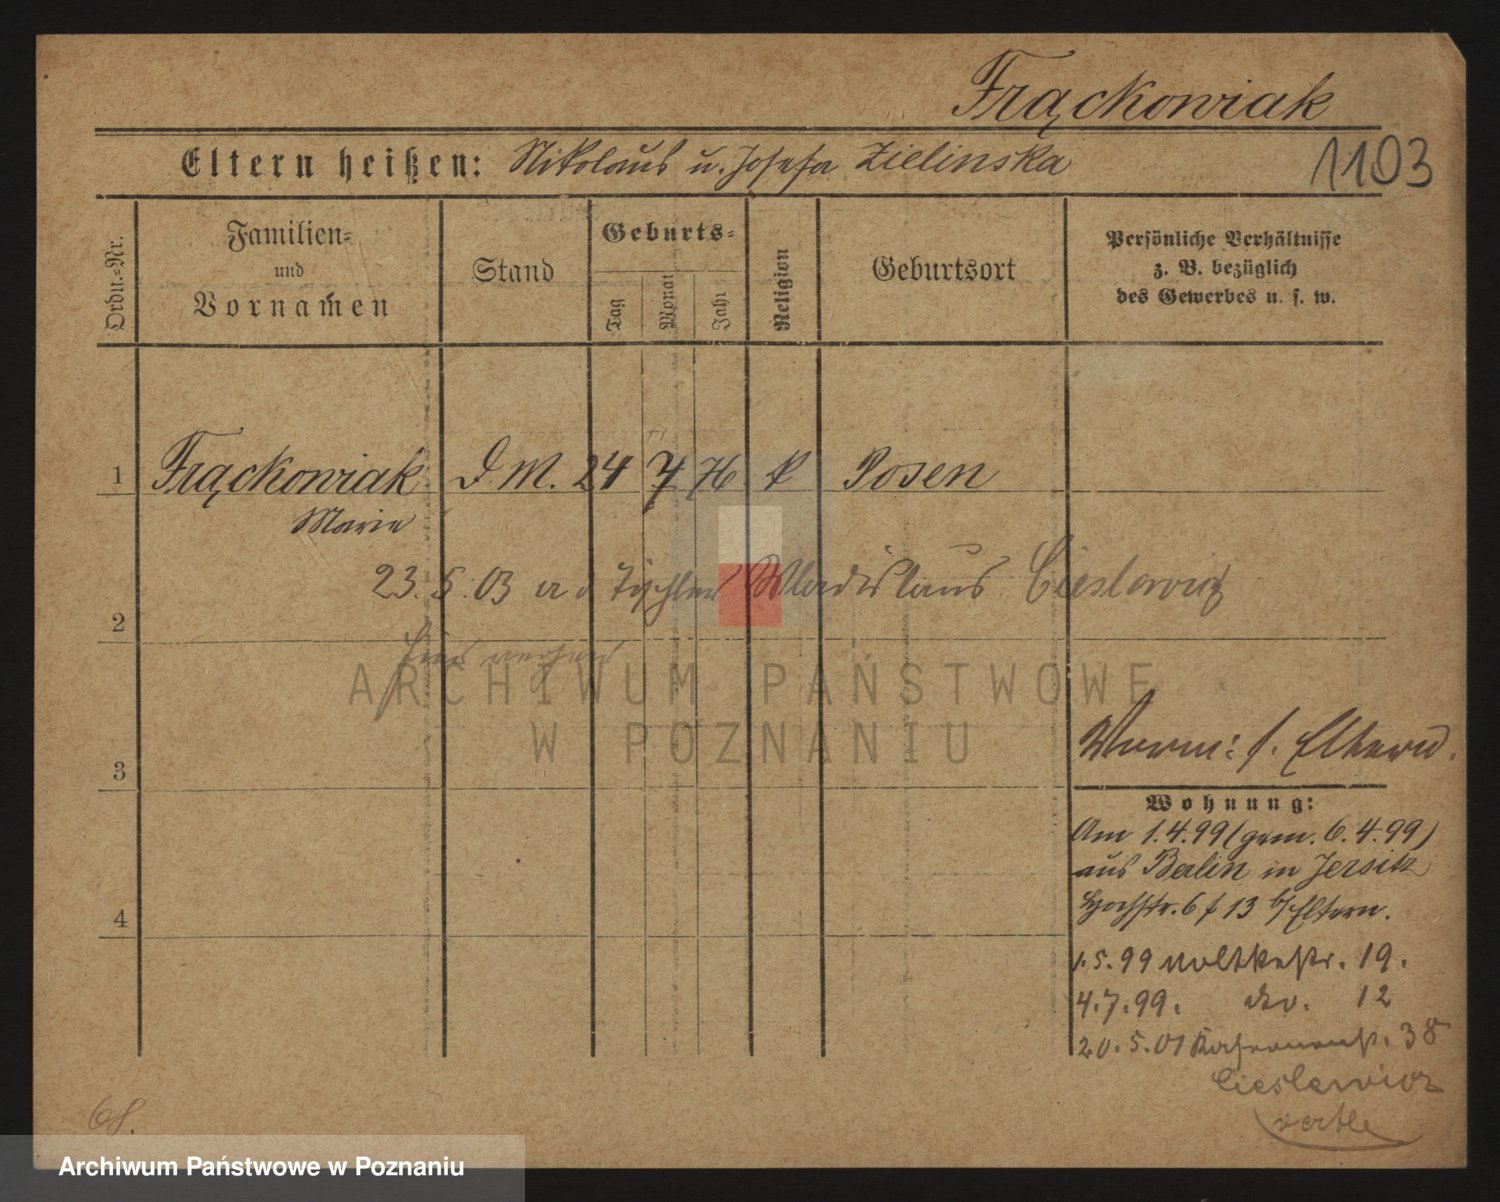 Frąckowiak
Eltern heißen: Nikolaus u. Josefa Zielinska
1103
Ordn.-Nr.
Familien-
und
Vornamen
Stand
Geburts-
Tag
Monat
Jahr
Religion
Geburtsort
Persönliche Verhältnisse
z. B. bezüglich
des Gewerbes u. s. w.
1 Frąckowiak D. M. 24 7 76 k Posen
Marie
23.5.03 Tischler Wladislaus Cieslewicz
2
hier
ARCHIWUM PAŃSTWOWE
W POZNANIU
3
4
s. Eltern.
Wohnung:
Am 1.4.99 (gem. 6.4.99)
aus Berlin in Jersitz
Hochstr. 6 13 b/Eltern.
1.5.99 Moltkestr. 19.
4.7.99. do. 12
20.5.01 38
Cieslewicz
68.
Archiwum Państwowe w Poznaniu